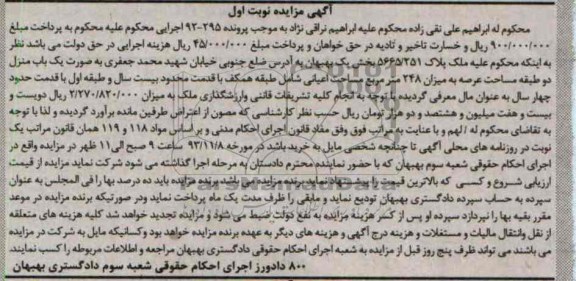 آگهی مزایده نوبت اول
محکوم له ابراهیم علی نقی زاده محکوم علیه ابراهیم نراقی نژاد به موجب پرونده ۲۹۵-۹۲ اجرایی محکوم علیه محکوم به پرداخت مبلغ
۹۰۰/۰۰۰/۰۰۰ ریال و خسارت تاخیر و تادیه در حق خواهان و پرداخت مبلغ ۴۵/۰۰۰/۰۰۰ ریال هزینه اجرایی در حق دولت می باشد نظر
به اینکه محکوم علیه ملک پلاک ۵۶۶۵/۲۵۱ بخش یک بهبهان به آدرس ضلع جنوبی خیابان شهید محمد جعفری به صورت یک باب منزل
دو طبقه مساحت عرصه به میزان ۲۴۸ متر مربع مساحت اعیانی شامل طبقه همکف با قدمت محدود بیست سال و طبقه اول با قدمت حدود
چهار سال به عنوان مال معرفی گردیده با توجه به انجام کلیه تشریفات قاننی وارزشگذاری ملک به میزان ۲/۲۷۰/۸۲۰/۰۰۰ ریال دویست و
بیست و هفت میلیون و هشتصد و دو هزار تومان ریال حسب نظر کارشناسی که مصون از اعتراض طرفین مانده برآورد گردیده و لذا با توجه
به تقاضای محکوم له / لهم و با عنایت به مراتب فوق وفق مفاد قانون اجرای احکام مدنی و بر اساس مواد ۱۱۸ و ۱۱۹ همان قانون مراتب یک
نوبت در روزنامه های محلی آگهی تا چنانچه شخصی مایل به خرید باشد در مورخه ۹۳/۱۱/۸ ساعت ۹ صبح الی ۱۱ ظهر در مزایده واقع در
اجرای احکام حقوقی شعبه سوم بهبهان که با حضور نماینده محترم دادستان به مرحله اجرا گذاشته می شود شرکت نماید مزایده از قیمت
ارزیابی شروع و کسی که بالاترین قیمت را پیشنهاد نماید برنده مزایده می باشد برنده مزایده باید ده درصد بها را فی المجلس به عنوان
سپرده به حساب سپرده دادگستری بهبهان تودیع نماید و مابقی را ظرف مدت یک ماه پرداخت نماید ودر صورتیکه برنده مزایده در موعد
مقرر بقیه بها را نپردازد سپرده او پس از کسر هزینه مزایده به نفع دولت ضبط می شود و مزایده تجدید خواهد شد کلیه هزینه های متعلقه
از نقل وانتقال مالیات و مستغلات و هزینه درج آگهی و هزینه های دیگر به عهده برنده مزایده خواهد بود وکسانیکه مایل به شرکت در مزایده
می باشند می تواند ظرف پنج روز قبل از مزایده به شعبه اجرای احکام حقوقی دادگستری بهبهان مراجعه و اطلاعات مربوطه را کسب نمایند.
۸۰۰ دادورز اجرای احکام حقوقی شعبه سوم دادگستری بهبهان